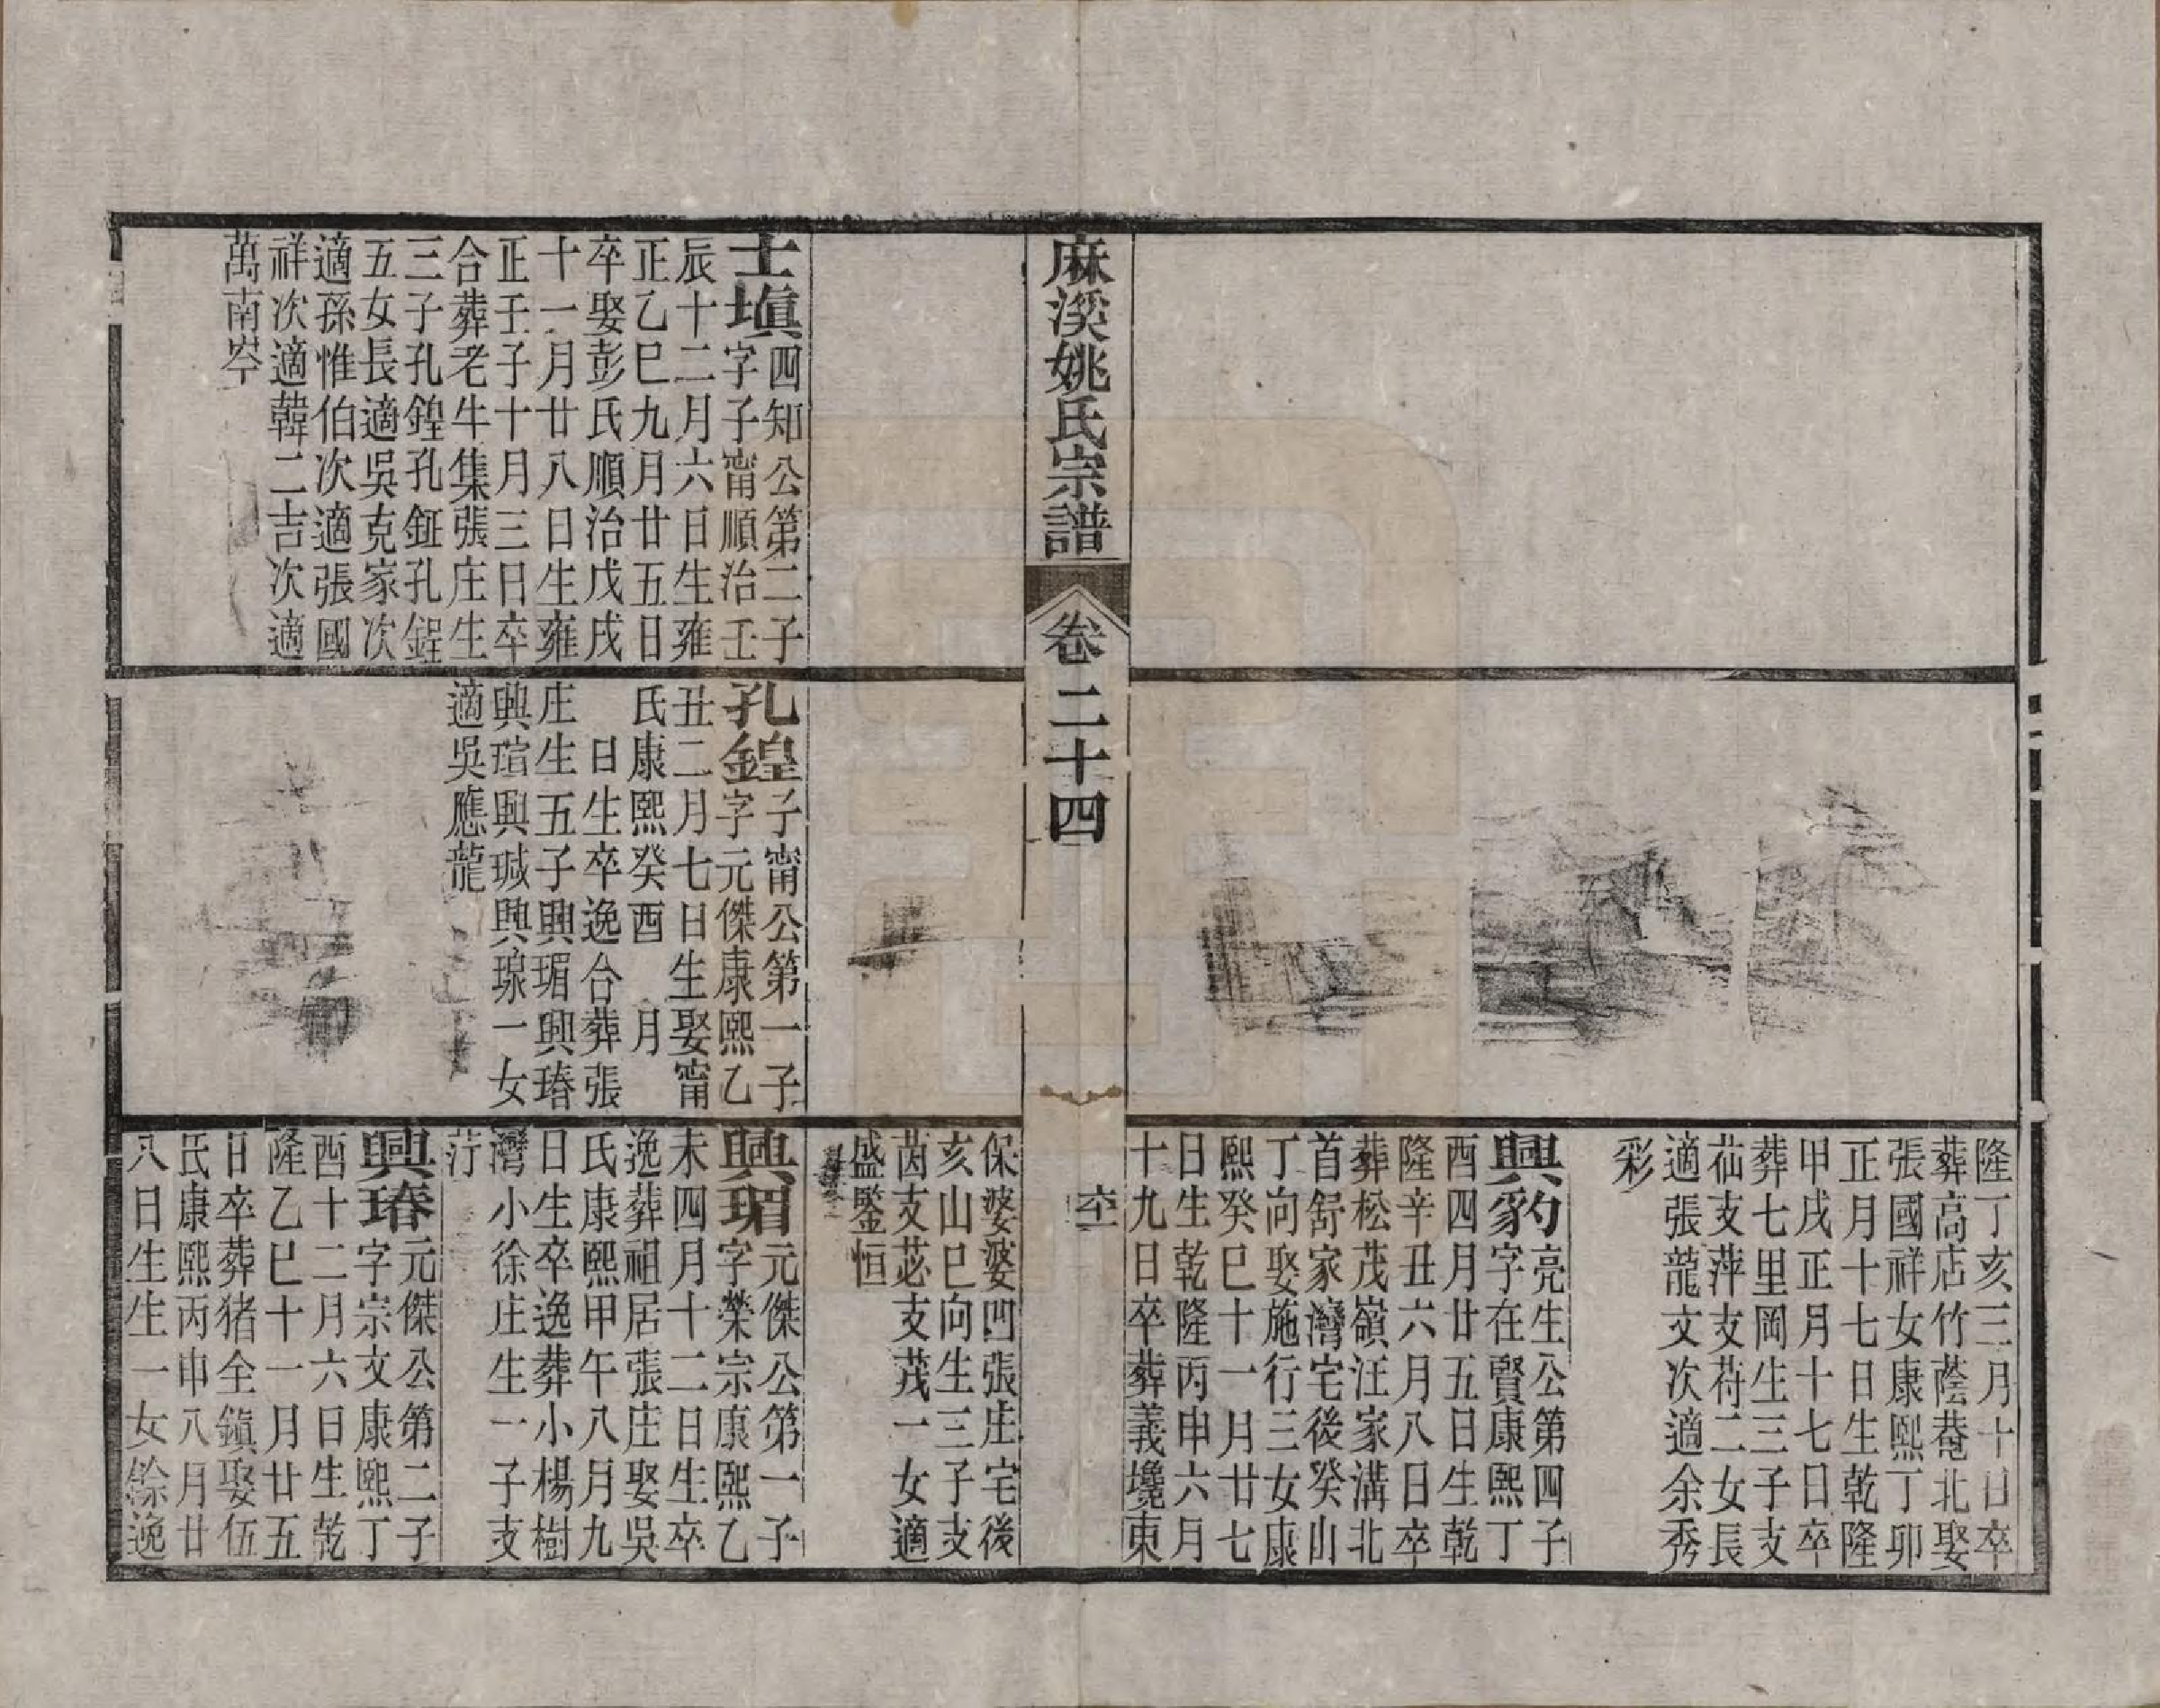 隆丁亥三月十日卒
葬高店竹蔭菴北娶
張國祥女康熙丁卯
正月十七日生乾隆
甲戌正月十七日卒
葬七里岡生三子支
秈支萍支荇二女長
適張龍文次適余秀
彩
興豹
亮生公第四子
字在賢康熙丁
酉四月廿五日生乾
隆辛丑六月八日卒
葬松茂嶺汪家溝北
首舒家灣宅後癸山
丁向娶施行三女康
熙癸巳十一月廿七
日生乾隆丙申六月
十九日卒葬義壩東
麻溪姚氏宗譜
卷二十四
六十一
保婆婆四張庄宅後
亥山巳向生三子支
茵支苾支茂一女適
盛鑒恒
士塡
四知公第二子
字子甯順治壬
辰十二月六日生雍
正乙巳九月廿五日
卒娶彭氏順治戊戌
十一月廿八日生雍
正壬子十月三日卒
合葬老牛集張庄生
三子孔鍠孔鉦孔鋥
五女長適吳克家次
適孫惟伯次適張國
祥次適韓二吉次適
萬南岺
孔鍠
子甯公第一子
字元傑康熙乙
丑二月七日生娶甯
氏康熙癸酉　月
　日生卒逸合葬張
庄生五子興瑂興瑃
興瑄興瑊興瑔一女
適吳應龍
興瑂
元傑公第一子
字榮宗康熙乙
未四月十二日生卒
逸葬祖居張庄娶吳
氏康熙甲午八月九
日生卒逸葬小楊樹
灣小徐庄生一子支
荢
興瑃
元傑公第二子
字宗文康熙丁
酉十二月六日生乾
隆乙巳十一月廿五
日卒葬猪全鎭娶伍
氏康熙丙申八月廿
八日生生一女餘逸